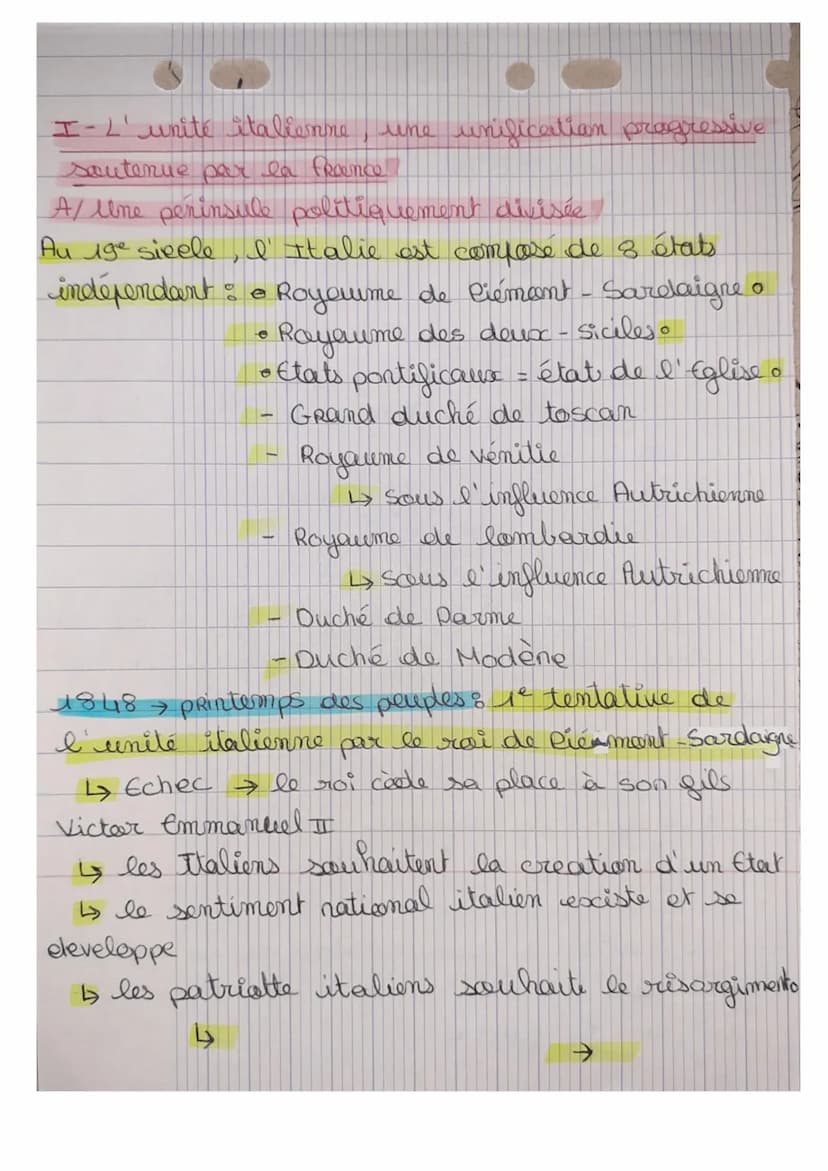 I - L'unité italienne, une unification progressive
soutenue par la France
A/ Une péninsule politiquement divisée
Au 19e sieele, l'Italie est composé de 8 états
indépendant : • Royaume de Piémont - Sardaigne •
• Royaume des deux - siciles •
• Etats pontificaux = état de l'Eglise •
- Grand duché de toscan
- Royaume de vénitie
↳ Sous l'influence Autrichienne
- Royaume de lombardie
↳ sous l'influence Autrichienne
- Duché de Parme
- Duché de Modène
1848 → printemps des peuples : 1e tentative de
l'unité italienne par le roi de Piémont - Sardaigne
↳ Echec → le roi cède sa place à son fils
Victor Emmanuel II
↳ les Italiens souhaitent la creation d'un Etat
↳ le sentiment national italien existe et se
developpe
↳ les patriotte italiens souhaite le risorgimento
↳ →